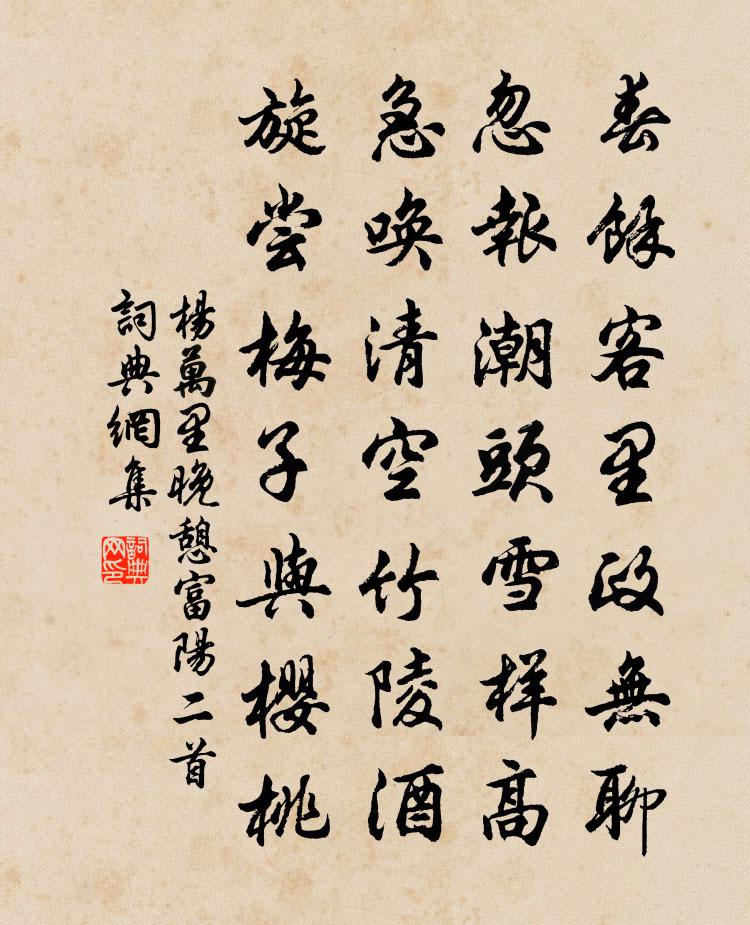 春餘客里政無聊
忽報潮頭雪样高
急唤清空竹陵酒
旋尝梅子與櫻桃
楊萬里晚憩富陽二首
詞典網集
詞典网印